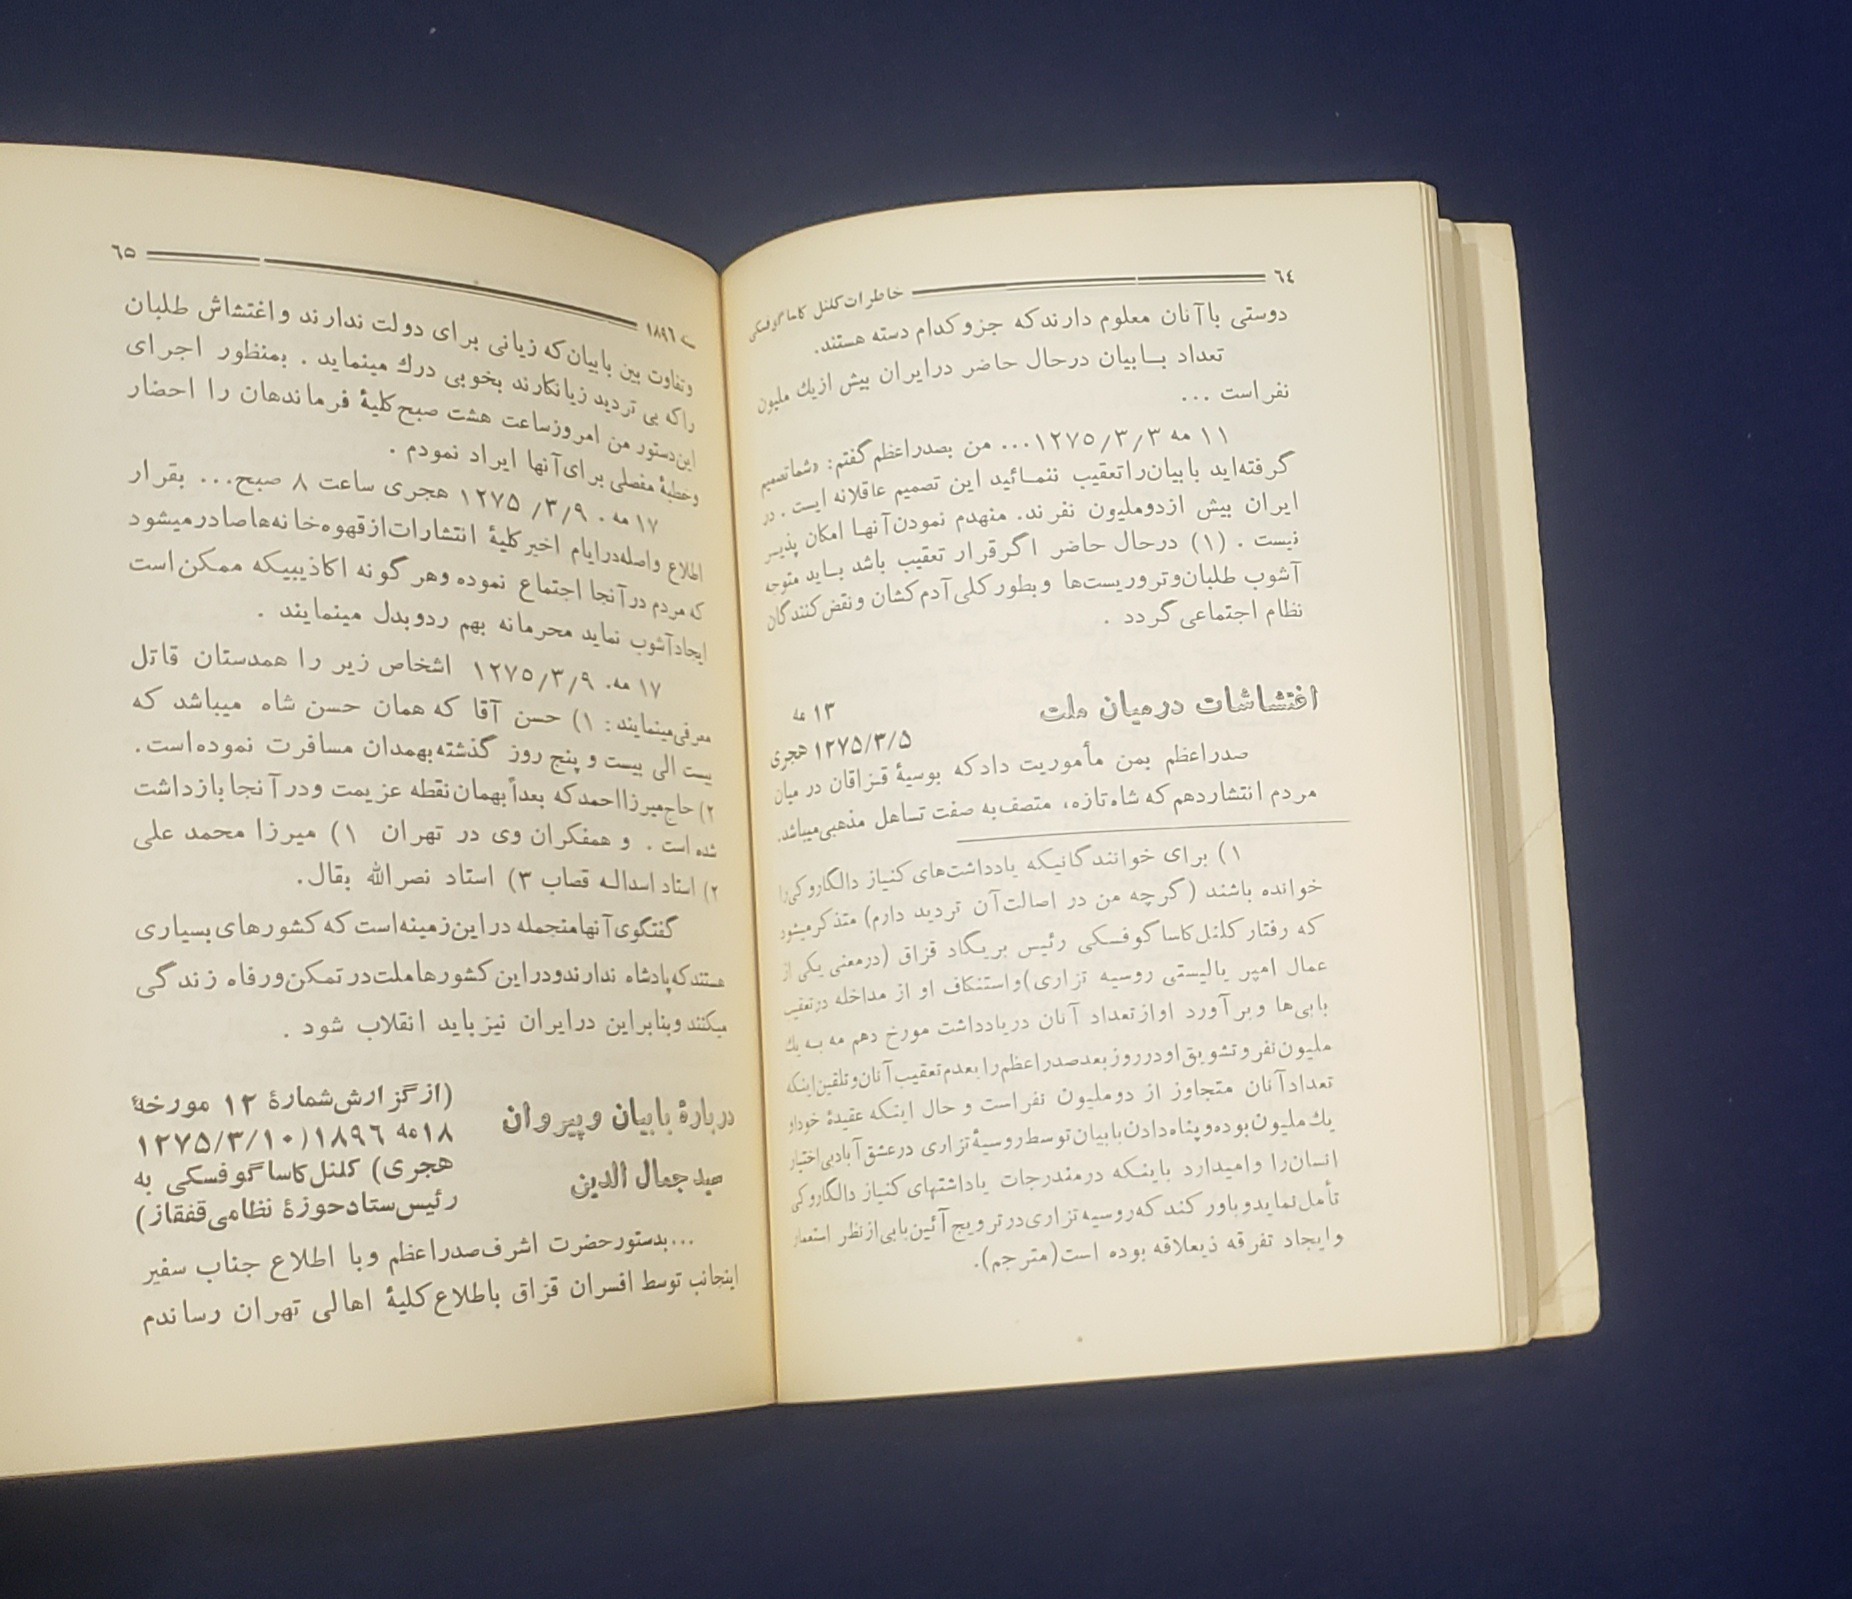 ٦٤
خاطرات کلنل کاساگوفسکی
دوستی با آنان معلوم دارند که جزو کدام دسته هستند.
تعداد بــابیان درحال حاضر در ایران بیش از یك ملیون
نفر است ...
۱۱ مه ۱۲۷۵/۳/۳... من بصدراعظم گفتم: «شما تصمیم
گرفته‌اید بابیان را تعقیب ننمــائید این تصمیم عاقلانه ایست. در
ایران بیش ازدوملیون نفرند. منهدم نمودن آنهـا امکان پذیــر
نیست. (۱) درحال حاضر اگر قرار تعقیب باشد بــاید متوجه
آشوب طلبان و تروریست‌ها و بطور کلی آدم کشان و نقض کنندگان
نظام اجتماعی گردد .
اغتشاشات در میان ملت
۱۳ مه
۱۲۷۵/۳/۵ هجری
صدراعظم بمن مأموریت داد که بوسیهٔ قــزاقان در میان
مردم انتشار دهم که شاه تازه، متصف به صفت تساهل مذهبی میباشد.
۱) برای خوانندگانیکه یادداشت‌های کنیاز دالگاروکی را
خوانده باشند (گرچه من در اصالت آن تردید دارم) متذکر میشود
که رفتار کلنل کاساگوفسکی رئیس بریگاد قزاق (درمعنی یکی از
عمال امپریالیستی روسیه تزاری) و استنکاف او از مداخله درتعقیب
بابی‌ها و برآورد او از تعداد آنان در یادداشت مورخ دهم مه بــه یك
ملیون نفر و تشویق او در روز بعد صدراعظم را بعدم تعقیب آنان و تلقین اینکه
تعداد آنان متجاوز از دوملیون نفر است و حال اینکه عقیدهٔ خود او
یك ملیون بوده و پناه دادن بابیان توسط روسیهٔ تزاری در عشق آباد بی اختیار
انسان را وامیدارد باینکه درمندرجات یاداشتهای کنیاز دالگاروکی
تأمل نماید و باور کند که روسیه تزاری در ترویج آئین بابی از نظر استعمار
و ایجاد تفرقه ذیعلاقه بوده است (مترجم).
۱۸۹٦
٦۵
وتفاوت بین بابیان که زیانی برای دولت ندارند و اغتشاش طلبان
را که بی تردید زیانکارند بخوبی درك مینماید . بمنظور اجرای
این دستور من امروز ساعت هشت صبح کلیهٔ فرماندهان را احضار
وخطبهٔ مفصلی برای آنها ایراد نمودم .
۱۷ مه . ۱۲۷۵ /۳/۹ هجری ساعت ۸ صبح... بقرار
اطلاع واصله در ایام اخیر کلیهٔ انتشارات از قهوه‌خانه‌ها صادر میشود
که مردم در آنجا اجتماع نموده و هر گونه اکاذیبیکه ممکن است
ایجاد آشوب نماید محرمانه بهم رد و بدل مینمایند .
۱۷ مه. ۱۲۷۵/۳/۹ اشخاص زیر را همدستان قاتل
معرفی مینمایند: ۱) حسن آقا که همان حسن شاه میباشد که
بیست الی بیست و پنج روز گذشته بهمدان مسافرت نموده است.
۲) حاج میرزا احمد که بعداً بهمان نقطه عزیمت و در آنجا بازداشت
شده است . و همفکران وی در تهران ۱) میرزا محمد علی
۲) استاد اسداله قصاب ۳) استاد نصرالله بقال.
گفتگوی آنها منجمله در این زمینه است که کشورهای بسیاری
هستند که پادشاه ندارند و در این کشورها ملت در تمکن و رفاه زندگی
میکنند و بنابراین در ایران نیز باید انقلاب شود .
دربارهٔ بابیان و پیروان
سید جمال الدین
(از گزارش شمارهٔ ۱۲ مورخهٔ
۱۸ مه ۱۸۹٦ (۱۲۷۵/۳/۱۰
هجری) کلنل کاساگوفسکی به
رئیس ستاد حوزهٔ نظامی قفقاز)
...بدستور حضرت اشرف صدراعظم و با اطلاع جناب سفیر
اینجانب توسط افسران قزاق باطلاع کلیهٔ اهالی تهران رساندم